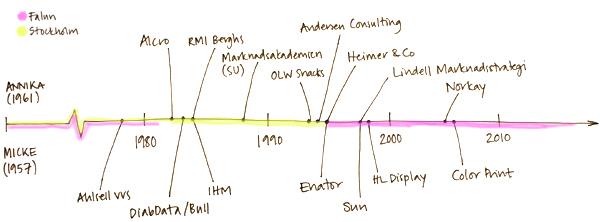 Falun
Stockholm
Alcro
RMI Berghs
Marknadsakademien
(SU)
OLW Snacks
Andersen Consulting
Heimer & Co
Lindell Marknadsstrategi
Norkay
ANNIKA
(1961)
MICKE
(1957)
1980
1990
2000
2010
Ahlsell VVS
DiabData/Bull
IHM
Enator
Sun
HL Display
Color Print